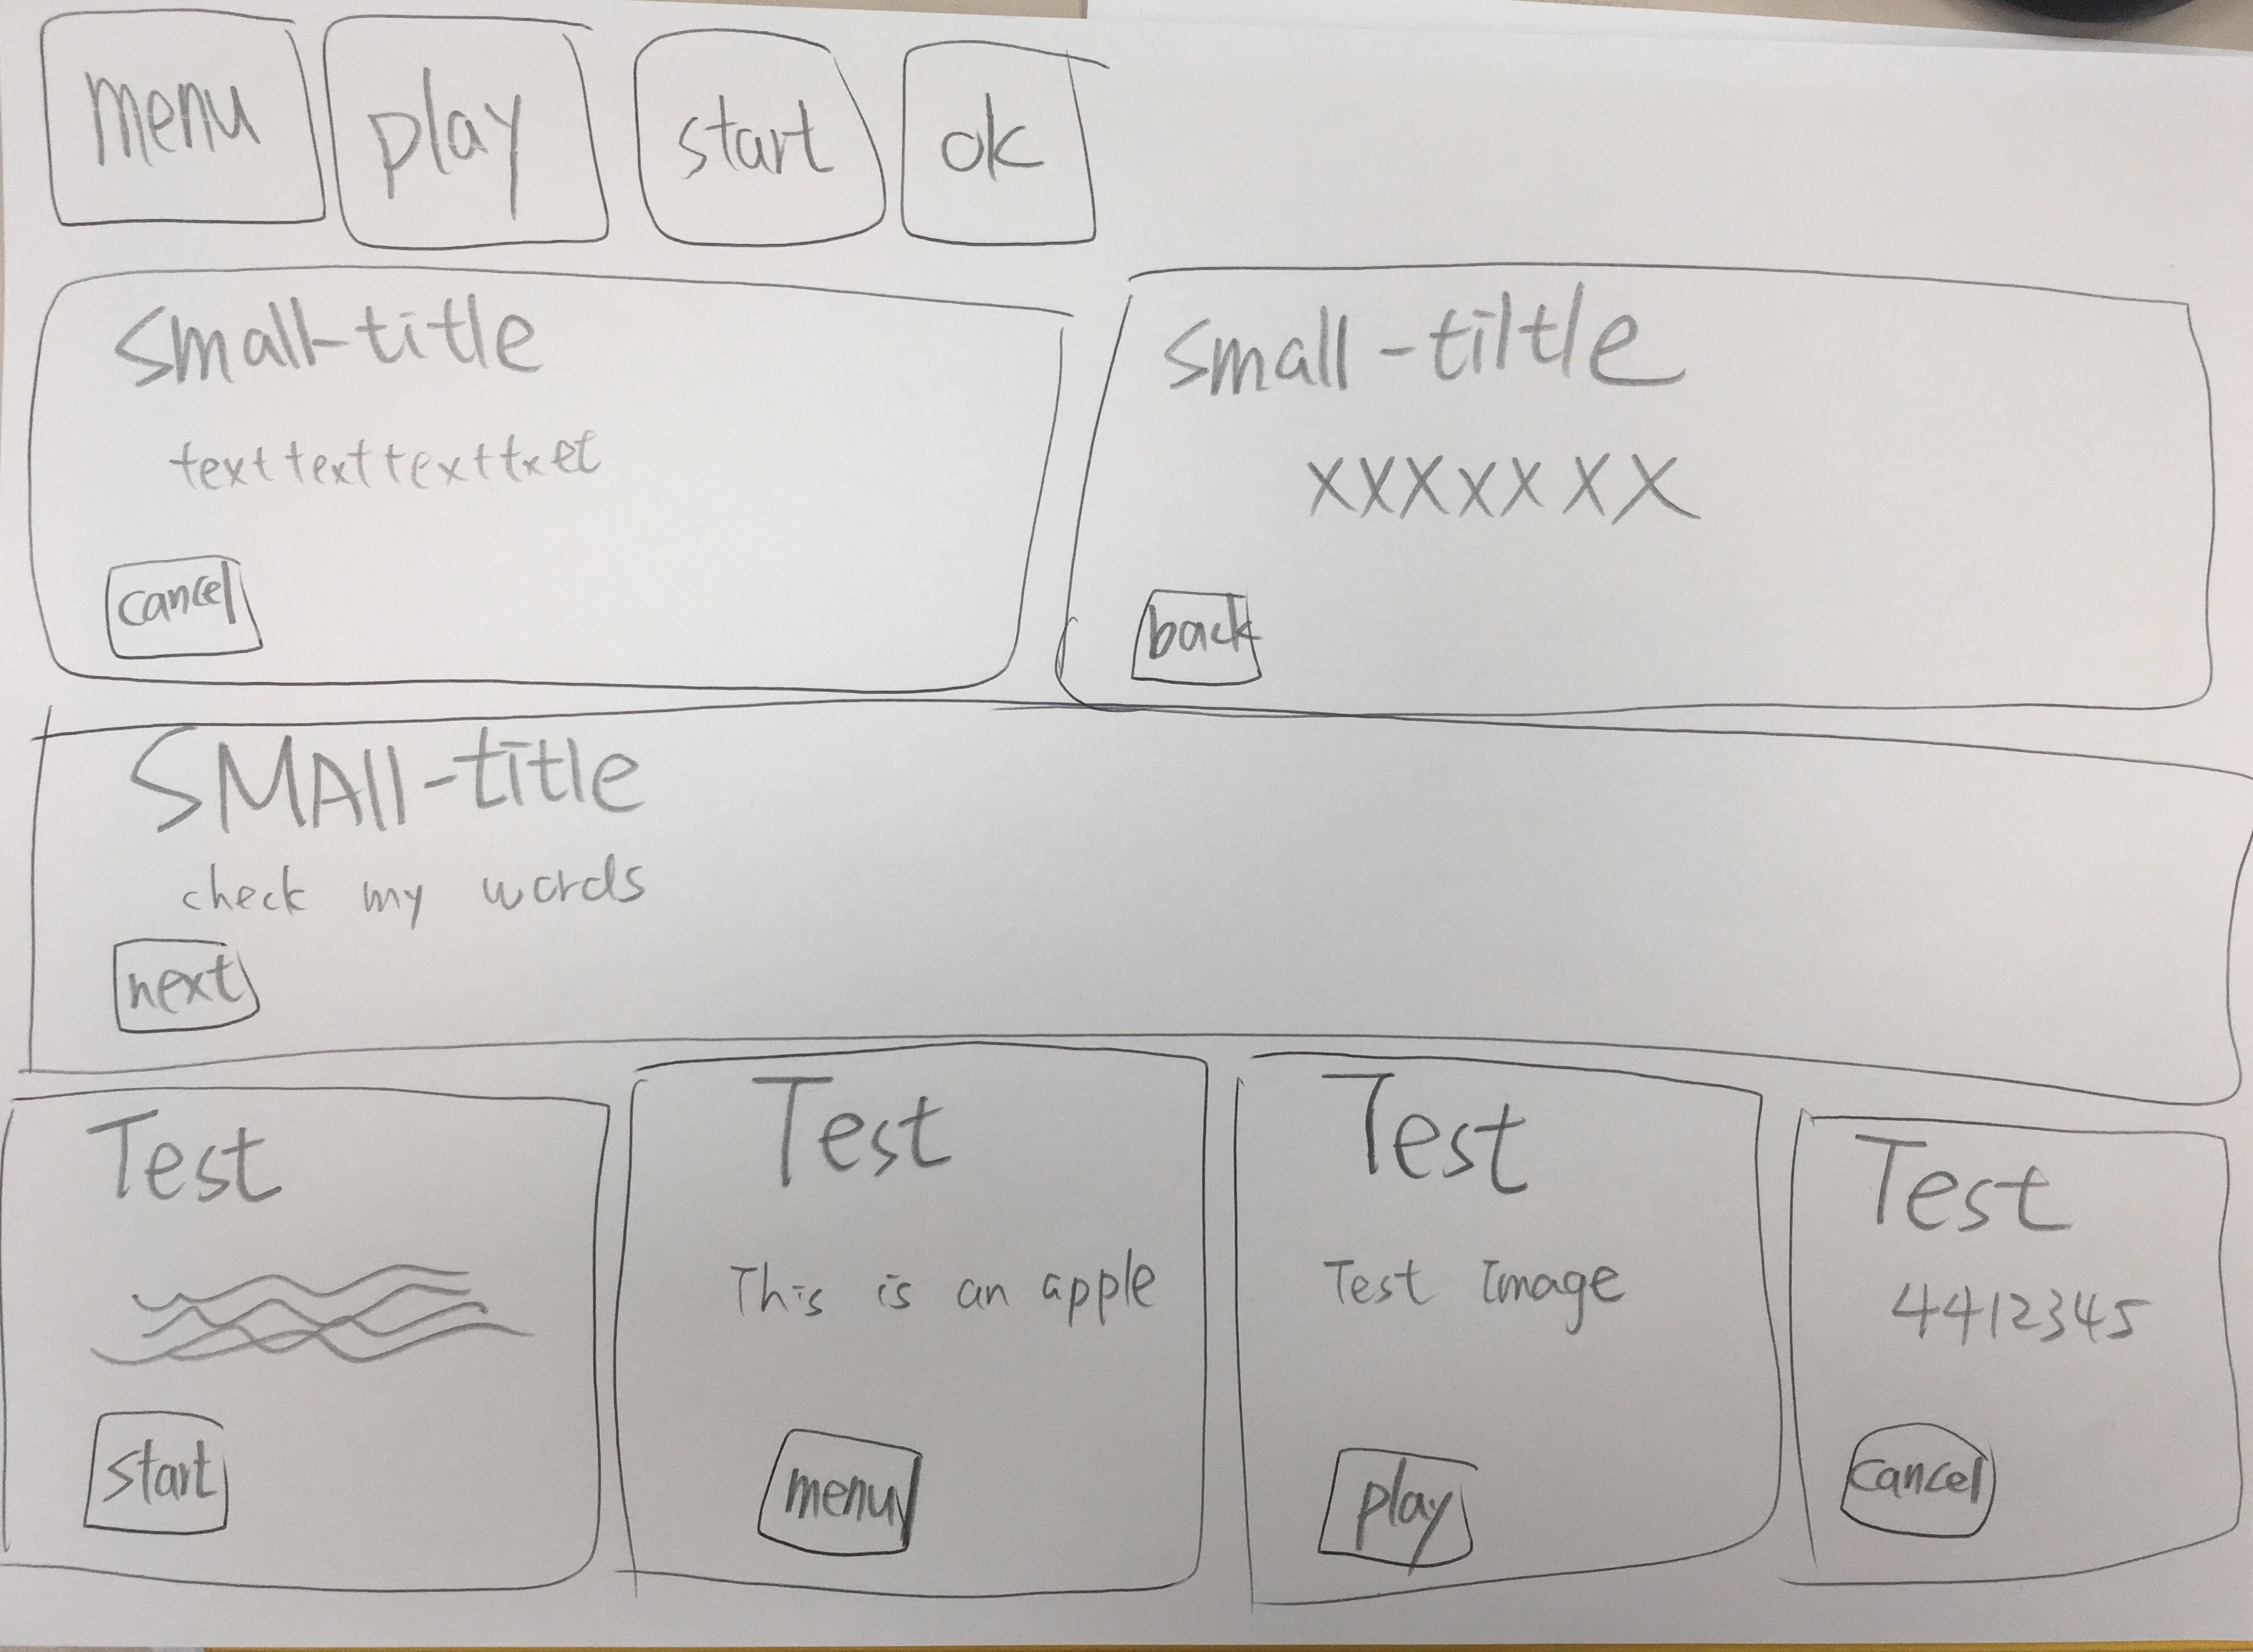 menu
play
start
ok
Small-title
texttexttexttxet
cancel
Small-tiltle
XXXXXXX
back
SMAll-title
check my words
next
Test
start
Test
This is an apple
menu
Test
Test Image
play
Test
4412345
cancel